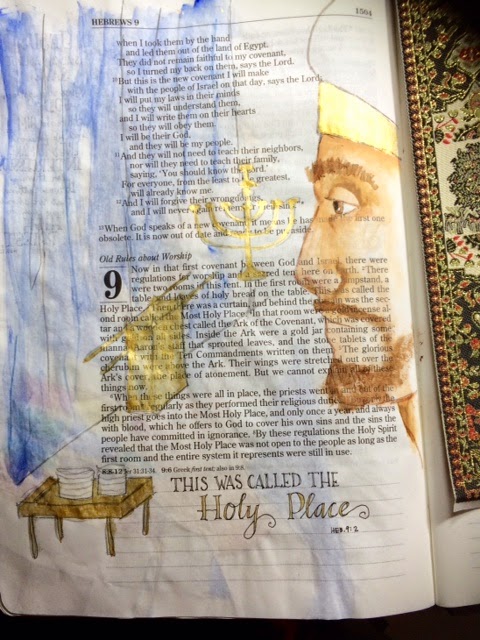 HEBREWS 9
1504
when I took them by the hand
and led them out of the land of Egypt.
They did not remain faithful to my covenant,
so I turned my back on them, says the Lord.
10 But this is the new covenant I will make
with the people of Israel on that day, says the Lord:
I will put my laws in their minds
so they will understand them,
and I will write them on their hearts
so they will obey them.
I will be their God,
and they will be my people.
11 And they will not need to teach their neighbors,
nor will they need to teach their family,
saying, 'You should know the Lord.'
For everyone, from the least to the greatest,
will already know me.
12 And I will forgive their wrongdoings,
and I will never again remember their sins."
13 When God speaks of a new covenant, it means he has made the first one
obsolete. It is now out of date and to be put aside.
Old Rules about Worship
9 Now in that first covenant between God and Israel, there were
regulations for worship and a sacred tent here on earth. 2 There
were two rooms in this tent. In the first room were a lampstand, a
table, and loaves of holy bread on the table. This was called the
Holy Place. 3 Then there was a curtain, and behind the curtain was the sec-
ond room called the Most Holy Place. 4 In that room were a gold incense al-
tar and a wooden chest called the Ark of the Covenant, which was covered
with gold on all sides. Inside the Ark were a gold jar containing some
manna, Aaron's staff that sprouted leaves, and the stone tablets of the
covenant with the Ten Commandments written on them. 5 The glorious
cherubim were above the Ark. Their wings were stretched out over the
Ark's cover, the place of atonement. But we cannot explain all these
things now.
6 When these things were all in place, the priests went in and out of the
first room regularly as they performed their religious duties. 7 But only the
high priest goes into the Most Holy Place, and only once a year, and always
with blood, which he offers to God to cover his own sins and the sins the
people have committed in ignorance. 8 By these regulations the Holy Spirit
revealed that the Most Holy Place was not open to the people as long as the
first room and the entire system it represents were still in use.
8:8-12 Jer 31:31-34. 9:6 Greek first tent; also in 9:8.
THIS WAS CALLED THE
Holy Place
HEB. 9:2